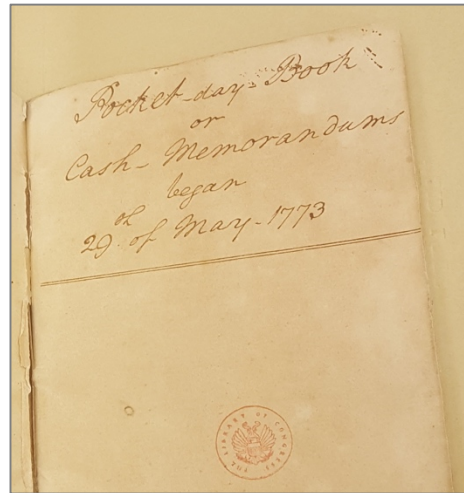 Pocket-day-Book
or
Cash- Memorandums
began
29th of May-1773
THE LIBRARY OF CONGRESS